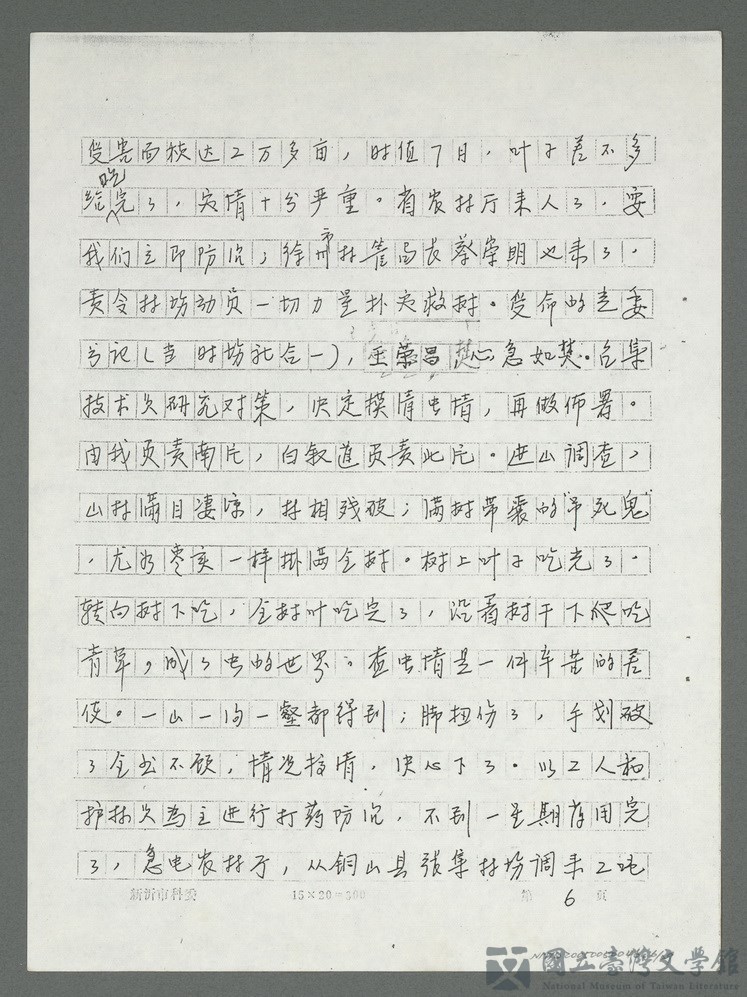 受害面积达2万多亩，时值7月，叶子差不多
给吃完了，灾情十分严重。省农林厅来人了，要
我们立即防治；徐州市林管局长蔡崇明也来了，
责令林场动员一切力量扑灾救树。受命的党委
书记（当时场社合一），王荣昌心急如焚。召集
技术员研究对策，决定摸清虫情，再做佈署。
由我负责南片，白叙道负责北片。进山调查，
山林满目凄凉，林相残破；满树带囊的"吊死鬼"
，尤如零亥一样掛满全树。树上叶子吃光了，
转向树下吃，全树叶吃完了，沿着树干下爬吃
青草，成了虫的世界。查虫情是一件辛苦的差
使。一山一沟一壑都得到；脚扭伤了，手划破
了全然不顾，情况摸清，决心下了。以工人和
护林员为主进行打药防治，不到一星期药用完
了，急电农林厅，从铜山县张集林场调来2吨
新沂市科委 15×20=300 第6页
國立臺灣文學館
National Museum of Taiwan Literature